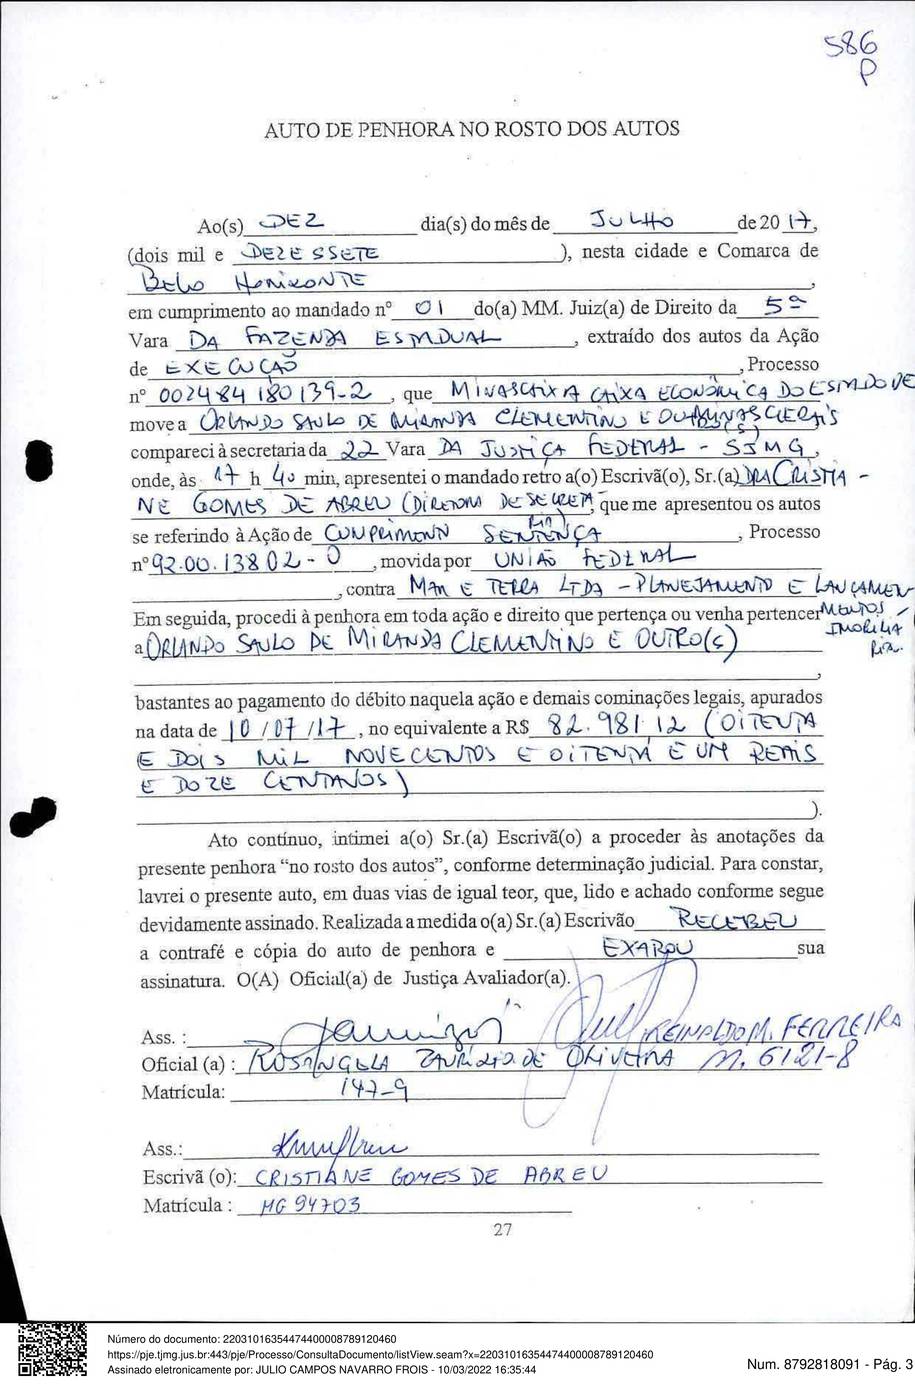 586
P
AUTO DE PENHORA NO ROSTO DOS AUTOS
Ao(s) DEZ dia(s) do mês de JULHO de 20 17,
(dois mil e DEZESSETE ), nesta cidade e Comarca de
BELO HORIZONTE ,
em cumprimento ao mandado nº 01 do(a) MM. Juiz(a) de Direito da 5ª
Vara DA FAZENDA ESTADUAL , extraído dos autos da Ação
de EXECUÇÃO , Processo
nº 002484180139-2 , que MINASCAIXA CAIXA ECONÔMICA DO ESTADO DE
move a ORLANDO SAULO DE MIRANDA CLEMENTINO E
compareci à secretaria da 22 Vara DA JUSTIÇA FEDERAL - SJMG ,
onde, às 17 h 40 min, apresentei o mandado retro a(o) Escrivã(o), Sr.(a) DRA CRISTIA -
NE GOMES DE ABREU (DIRETORA DE SECRETA- , que me apresentou os autos
RIA)
se referindo à Ação de CUMPRIMENTO SENTENÇA , Processo
nº 92.00.13802-0 , movida por UNIÃO FEDERAL
, contra MAR E TERRA LTDA - PLANEJAMENTO E LANÇAMEN
Em seguida, procedi à penhora em toda ação e direito que pertença ou venha pertencer
IMOBILIÁ
a ORLANDO SAULO DE MIRANDA CLEMENTINO E OUTRO(S)
,
bastantes ao pagamento do débito naquela ação e demais cominações legais, apurados
na data de 10/07/17 , no equivalente a R$ 82.981,12 (OITENTA
E DOIS MIL NOVECENTOS E OITENTA E UM REAIS
E DOZE CENTAVOS)
).
Ato contínuo, intimei a(o) Sr.(a) Escrivã(o) a proceder às anotações da
presente penhora “no rosto dos autos”, conforme determinação judicial. Para constar,
lavrei o presente auto, em duas vias de igual teor, que, lido e achado conforme segue
devidamente assinado. Realizada a medida o(a) Sr.(a) Escrivão RECEBEU
a contrafé e cópia do auto de penhora e EXAROU sua
assinatura. O(A) Oficial(a) de Justiça Avaliador(a).
Ass. : REINALDO M. FERREIRA
Oficial (a) : ROSANGELA DE OLIVEIRA M. 6121-8
Matrícula: 147-9
Ass.:
Escrivã (o): CRISTIANE GOMES DE ABREU
Matrícula : MG 94703
27
Número do documento: 22031016354474400008789120460
https://pje.tjmg.jus.br:443/pje/Processo/ConsultaDocumento/listView.seam?x=22031016354474400008789120460
Assinado eletronicamente por: JULIO CAMPOS NAVARRO FROIS - 10/03/2022 16:35:44
Num. 8792818091 - Pág. 3